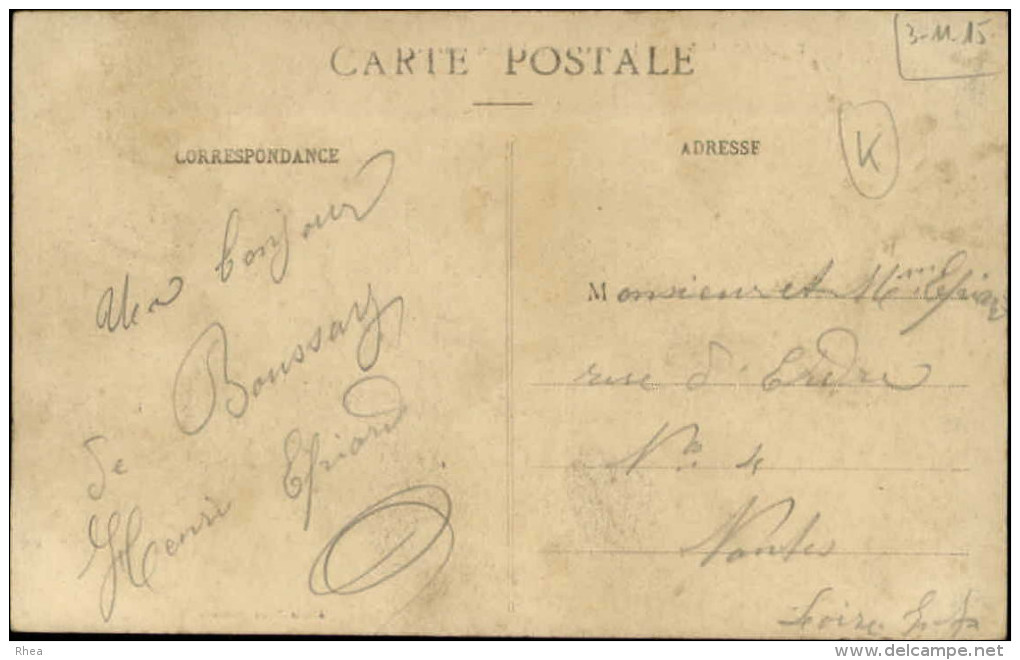 3-11-15
CARTE POSTALE
CORRESPONDANCE
ADRESSE
K
Un bonjour
de Boussay
Henri Epiard
Monsieur et Mme Epiard
rue d'Erdre
No 4
Nantes
Loire Inf
Rhea
delcampe.net